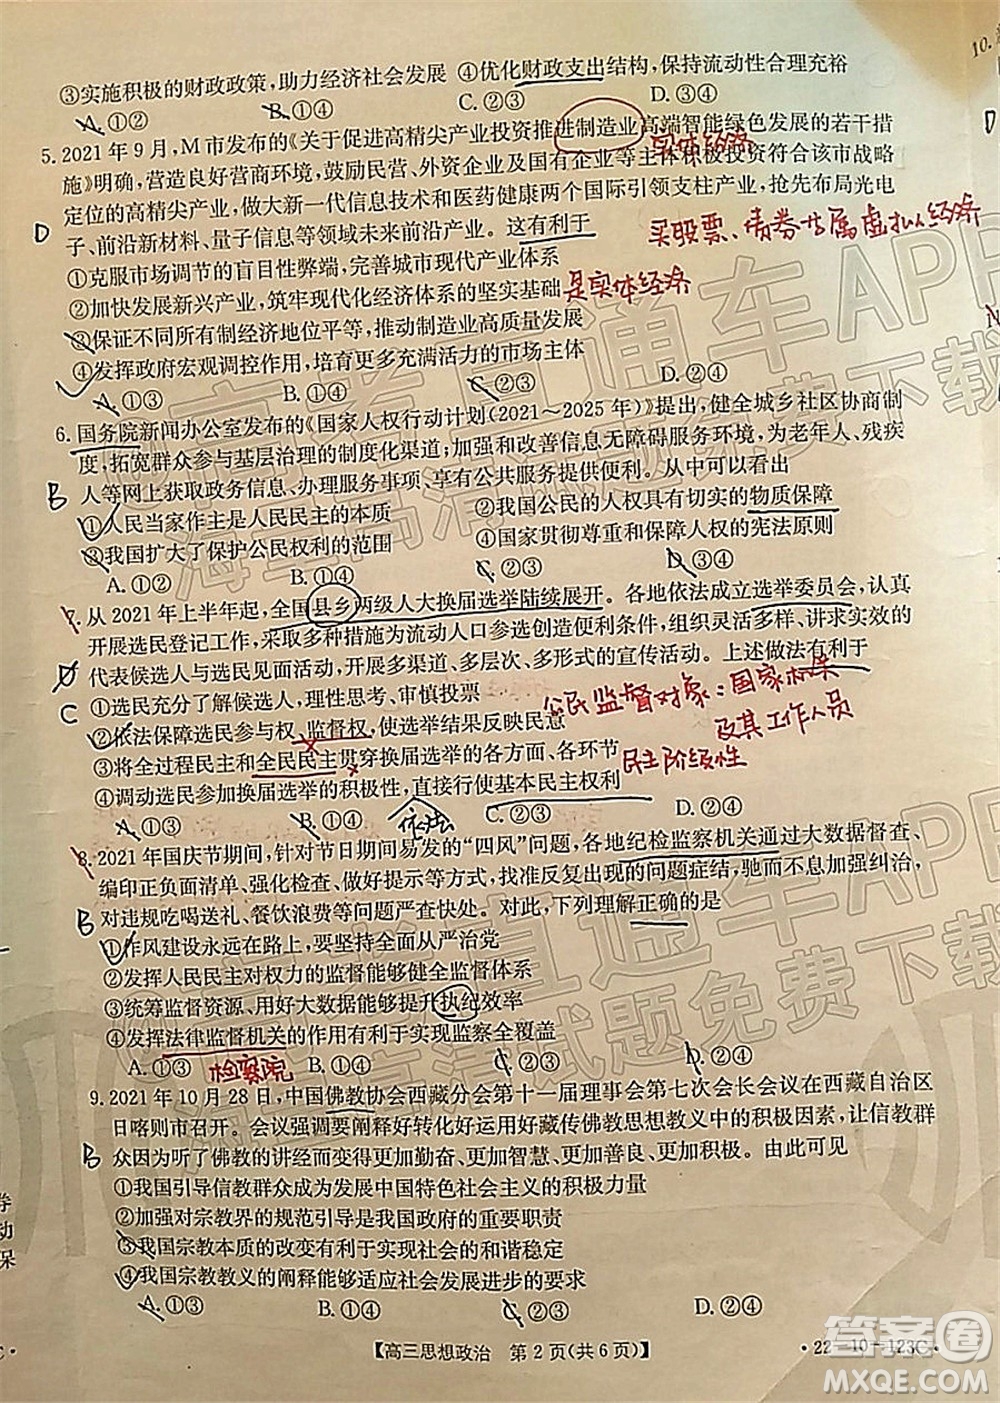 ③实施积极的财政政策，助力经济社会发展 ④优化财政支出结构，保持流动性合理充裕
A.①② B.①④ C.②③ D.③④
5.2021年9月，M市发布的《关于促进高精尖产业投资推进制造业高端智能绿色发展的若干措
实体经济
施》明确，营造良好营商环境，鼓励民营、外资企业及国有企业等主体积极投资符合该市战略
定位的高精尖产业，做大新一代信息技术和医药健康两个国际引领支柱产业，抢先布局光电
D 子、前沿新材料、量子信息等领域未来前沿产业。这有利于
买股票、债券等属虚拟经济
①克服市场调节的盲目性弊端，完善城市现代产业体系
②加快发展新兴产业，筑牢现代化经济体系的坚实基础 是实体经济
③保证不同所有制经济地位平等，推动制造业高质量发展
④发挥政府宏观调控作用，培育更多充满活力的市场主体
A.①③ B.①④ C.②③ D.②④
6.国务院新闻办公室发布的《国家人权行动计划（2021～2025年）》提出，健全城乡社区协商制
度，拓宽群众参与基层治理的制度化渠道；加强和改善信息无障碍服务环境，为老年人、残疾
B 人等网上获取政务信息、办理服务事项、享有公共服务提供便利。从中可以看出
①人民当家作主是人民民主的本质 ②我国公民的人权具有切实的物质保障
③我国扩大了保护公民权利的范围 ④国家尊重和保障人权的宪法原则
A.①② B.①④ C.②③ D.③④
7.从2021年上半年起，全国县乡两级人大换届选举陆续展开。各地依法成立选举委员会，
开展选民登记工作，采取多种措施为流动人口参选创造便利条件，组织灵活多样、讲求实效的
代表候选人与选民见面活动，开展多渠道、多层次、多形式的宣传活动。上述做法有利于
C ①选民充分了解候选人，理性思考、审慎投票
公民监督对象：国家机关及其工作人员
②依法保障选民参与权、监督权，使选举结果反映民意
③将全过程民主和全民民主贯穿换届选举的各方面、各环节 民主阶级性
④调动选民参加换届选举的积极性，直接行使基本民主权利
依法
A.①③ B.①④ C.②③ D.②④
8.2021年国庆节期间，针对节日期间易发的“四风”问题，各地纪检监察机关通过大数据督查、
编印正负面清单、强化检查、做好提示等方式，找准反复出现的问题症结，精准施策纠治，
B 对违规吃喝送礼、餐饮浪费等问题严查快处。对此，下列理解正确的是
①作风建设永远在路上，要坚持全面从严治党
②发挥人民民主对权力的监督作用能够健全监督体系
③统筹监督资源、用好大数据能够提升执纪效率
④发挥法律监督机关的作用有利于实现监察全覆盖
检察院
A.①③ B.①④ C.②③ D.②④
9.2021年10月28日，中国佛教协会西藏分会第十一届理事会第七次会长会议在西藏自治区
日喀则市召开。会议强调要阐释好转化好运用好藏传佛教思想教义中的积极因素，让信教群
B 众因为听了佛教的讲经而变得更加勤奋、更加智慧、更加善良、更加积极。由此可见
①我国引导信教群众成为发展中国特色社会主义的积极力量
②加强对宗教界的规范引导是我国政府的重要职责
③我国宗教本质的改变有利于实现社会的和谐稳定
④我国宗教教义的阐释能够适应社会发展进步的要求
A.①③ B.①④ C.②③ D.②④
【高三思想政治 第2页（共6页）】
·22－10－123C·
10.
答案圈
MXQE.COM